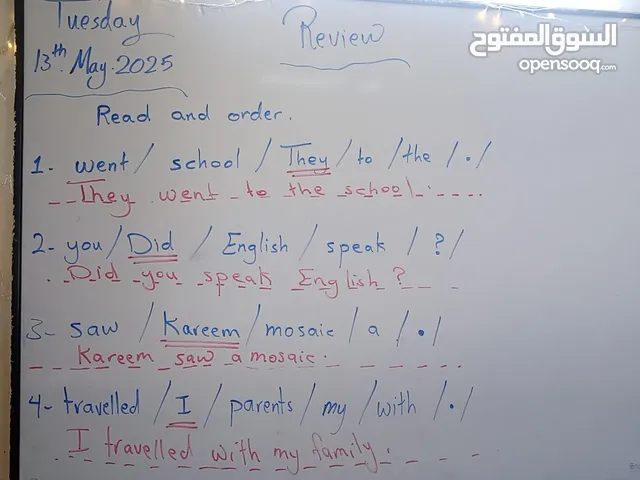 Tuesday
13th. May. 2025
Review
السوق المفتوح
opensooq.com
Read and order.
1- went / school / They / to / the / . /
They went to the school.
2- you / Did / English / speak / ? /
Did you speak English ?
3- saw / Kareem / mosaic / a / . /
Kareem saw a mosaic.
4- travelled / I / parents / my / with / . /
I travelled with my family.